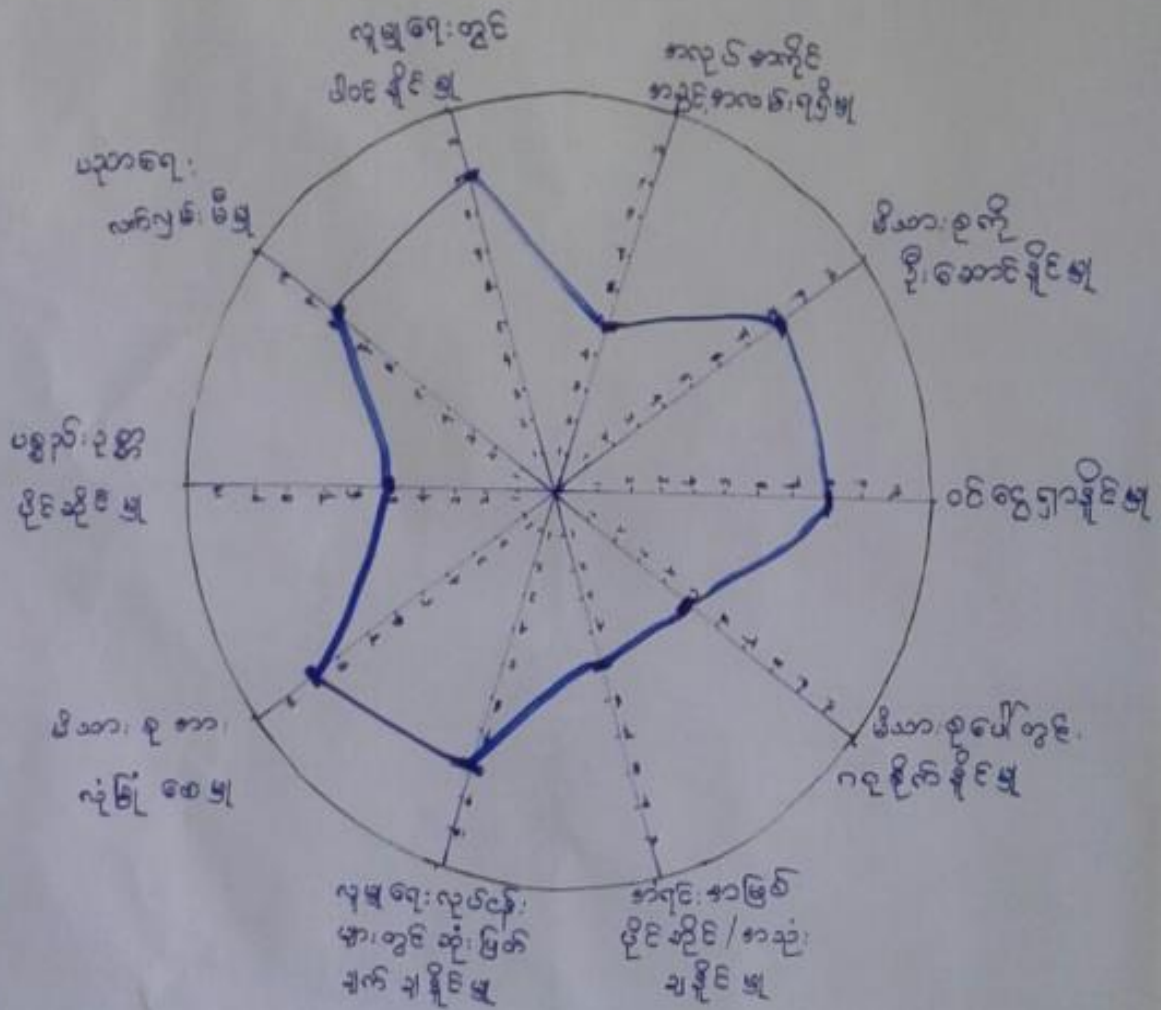 လူမှုရေးတွင်
ပါဝင်နိုင်မှု
အလုပ်အကိုင်
အခွင့်အလမ်းရရှိမှု
မိသားစုကို
ဦးဆောင်နိုင်မှု
ဝင်ငွေရှာနိုင်မှု
မိသားစုပေါ်တွင်
ဂရုစိုက်နိုင်မှု
အရင်းအမြစ်
ပိုင်ဆိုင်/အသုံး
ချနိုင်မှု
လူမှုရေးလုပ်ငန်း
များတွင် ဆုံးဖြတ်
ချက်ချနိုင်မှု
မိသားစုအား
လုံခြုံစေမှု
ပစ္စည်းဥစ္စာ
ပိုင်ဆိုင်မှု
ပညာရေး
လက်လှမ်းမီမှု